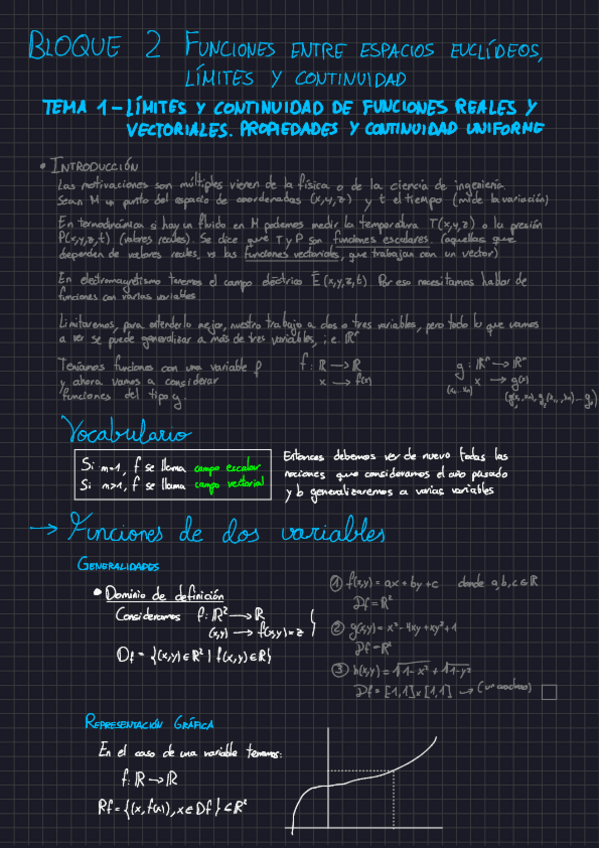 BLOQUE 2 FUNCIONES ENTRE ESPACIOS EUCLÍDEOS,
LÍMITES Y CONTINUIDAD
TEMA 1 - LÍMITES Y CONTINUIDAD DE FUNCIONES REALES Y
VECTORIALES. PROPIEDADES Y CONTINUIDAD UNIFORME
• INTRODUCCIÓN
Las motivaciones son múltiples vienen de la física o de la ciencia de ingeniería.
Sean M un punto del espacio de coordenadas (x,y,z) y t el tiempo (mide la variación)
En termodinámica si hay un fluido en M podemos medir la temperatura T(x,y,z) o la presión
P(x,y,z,t) (valores reales). Se dice que T y P son funciones escalares (aquellas que
dependen de valores reales, vs las funciones vectoriales, que trabajan con un vector)
En electromagnetismo tenemos el campo eléctrico E(x,y,z,t) Por eso necesitamos hablar de
funciones con varias variables
Limitaremos, para entenderlo mejor, nuestro trabajo a dos o tres variables, pero todo lo que vamos
a ver se puede generalizar a más de tres variables, i.e. ℝⁿ
Teníamos funciones con una variable f
y ahora vamos a considerar
funciones del tipo g.
f: ℝ → ℝ
x → f(x)
g: ℝⁿ → ℝᵐ
x → g(x)
(x₁...xₙ)
Vocabulario
Si m=1, f se llama campo escalar
Si m>1, f se llama campo vectorial
Entonces debemos ver de nuevo todas las
nociones que consideramos el año pasado
y lo generalizaremos a varias variables
→ Funciones de dos variables
GENERALIDADES
• Dominio de definición
Consideramos f: ℝ² → ℝ
(x,y) → f(x,y) = z }
Df = {(x,y) ∈ ℝ² | f(x,y) ∈ ℝ}
① f(x,y) = ax + by + c donde a,b,c ∈ ℝ
Df = ℝ²
② g(x,y) = x³ - 4xy + xy² + 1
Df = ℝ²
③ h(x,y) = √1-x² + √1-y²
Df = [1,1] x [1,1] → (un cuadrado)
REPRESENTACIÓN GRÁFICA
En el caso de una variable tenemos:
f: ℝ → ℝ
Rf = {(x, f(x)), x ∈ Df} ⊂ ℝ²